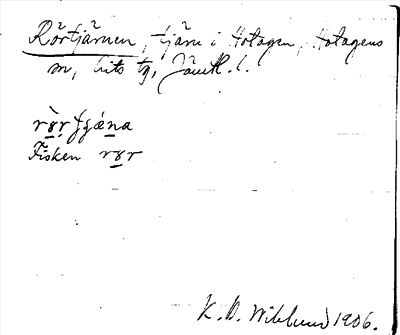 Rörtjärnen, tjärn i Hotagen, Hotagens
sn, Lits tg, Jämtl. l.
rö̀r̥ʃʒǽna
Fisken rör
K. B. Wiklund 1906.